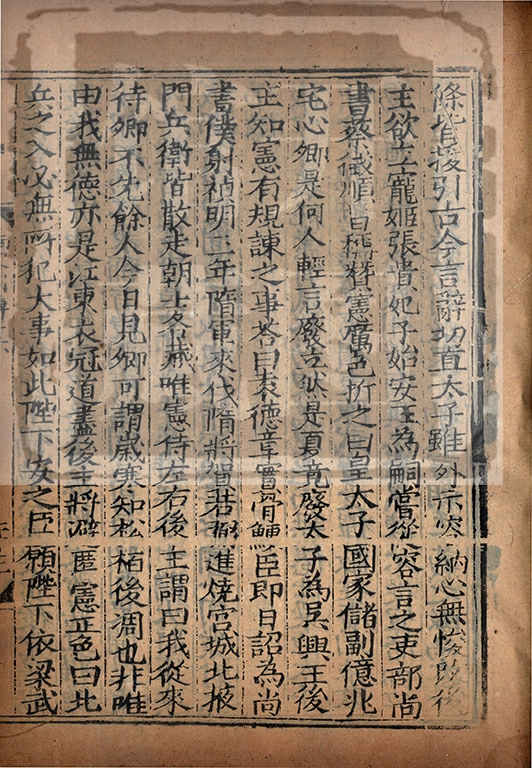 條皆援引古今言辭切直太子雖外示容納心無悛改後
主欲立寵姬張貴妃子始安王為嗣嘗從容言之吏部尚
書蔡徵順旨稱贊憲厲色折之曰皇太子國家儲副億兆
宅心卿是何人輕言廢立然是夏竟廢太子為吳興王後
主知憲有規諫之事答曰袁德章實骨鯁臣即日詔為尚
書僕射禎明三年隋軍來伐隋將賀若弼進燒宮城北掖
門兵衛皆散走朝士各藏唯憲侍左右後主謂曰我從來
待卿不先餘人今日見卿可謂歲寒知松栢後凋也非唯
由我無德亦是江東衣冠道盡後主將避匿憲正色曰北
兵之入必無所犯大事如此陛下安之臣願陛下依梁武